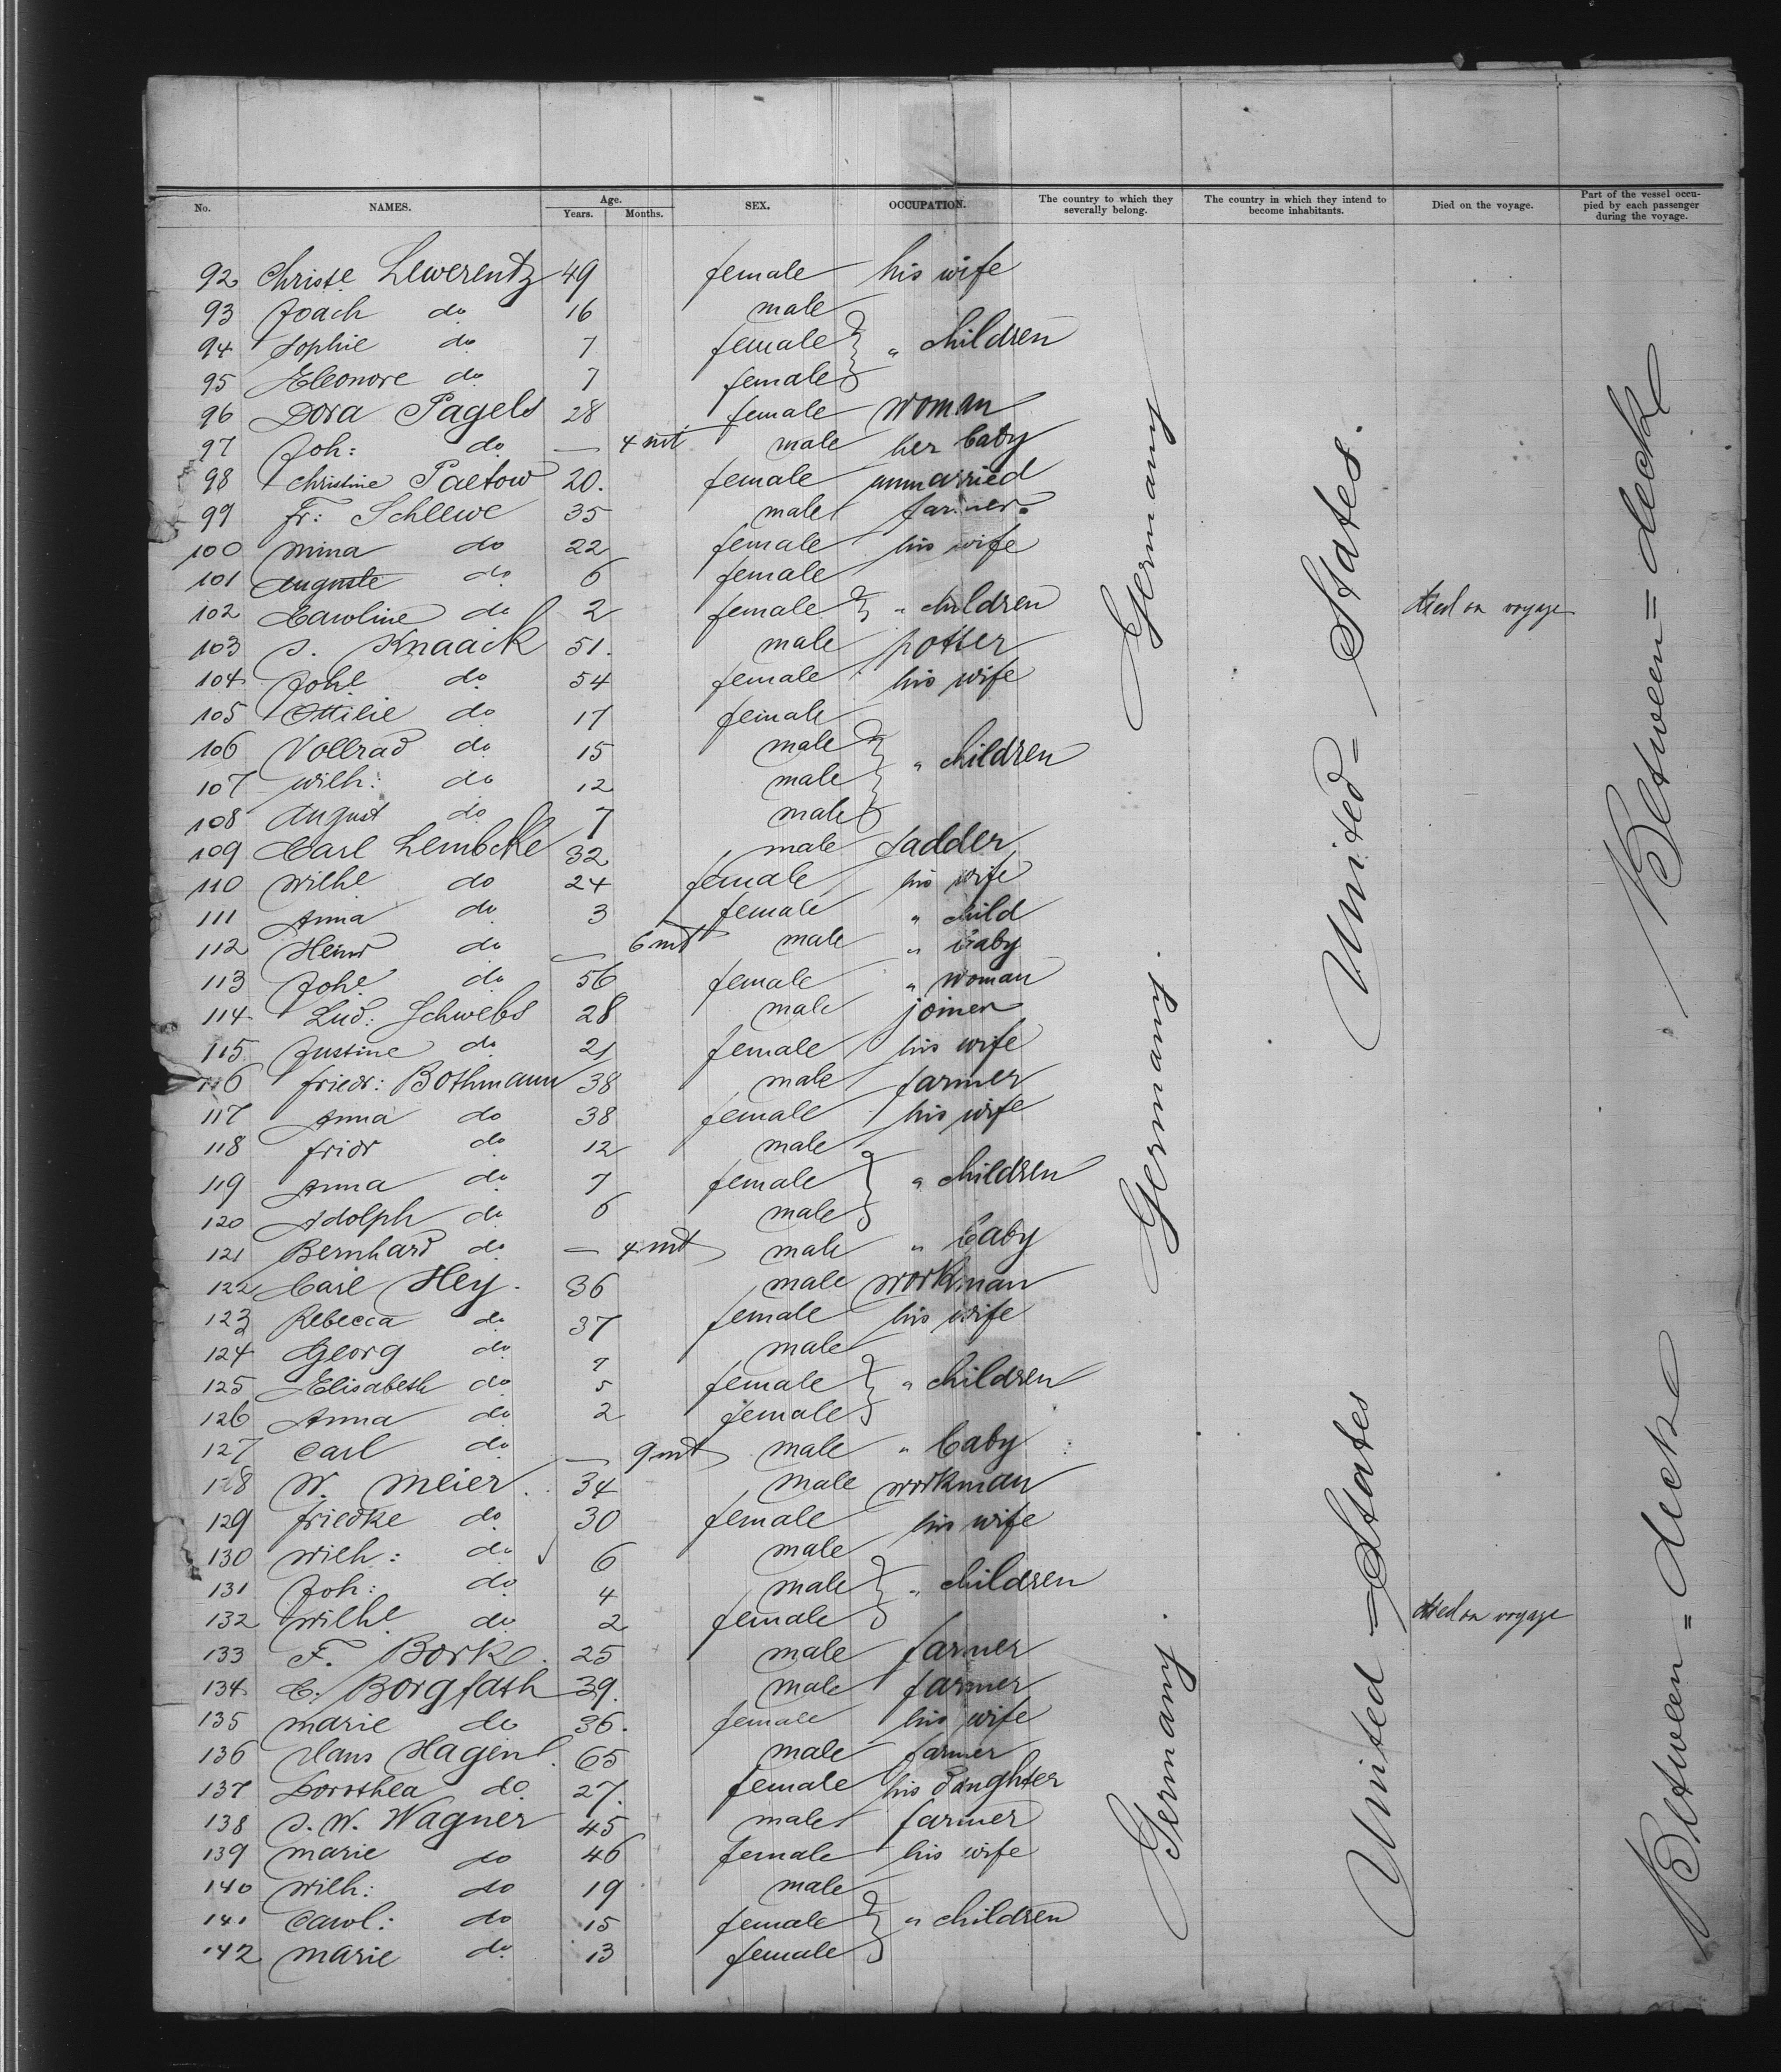 No. NAMES. Age. Years. Months. SEX. OCCUPATION. The country to which they severally belong. The country in which they intend to become inhabitants. Died on the voyage. Part of the vessel occupied by each passenger during the voyage.
92 Christe Lewerentz 49 female his wife
93 Joach do 16 male
94 Sophie do 7 female " children
95 Eleonore do 7 female
96 Dora Pagels 28 female woman
97 Joh: do — 4 mt male her baby
98 Christine Paetow 20. female unmarried
99 Fr: Schlewe 35 male farmer
100 Mina do 22 female his wife
101 Auguste do 6 female
102 Caroline do 2 female " children died on voyage
103 J. Knaack 51. male potter
104 Johe do 54 female his wife
105 Ottilie do 17 female
106 Vollrad do 15 male " children
107 Wilh: do 12 male
108 August do 7 male
109 Carl Lembcke 32 male sadder
110 Wilhe do 24 female his wife
111 Anna do 3 female " child
112 Heinr do — 6 mt male " baby
113 Johe do 56 female " woman
114 Lud: Schwebs 28 male joiner
115 Justine do 21 female his wife
116 Friedr: Bothmann 38 male farmer
117 Anna do 38 female his wife
118 Fridr do 12 male
119 Anna do 7 female " children
120 Adolph do 6 male
121 Bernhard do — 4 mt male " baby
122 Carl Hey. 36 male workman
123 Rebecca do 37 female his wife
124 Georg do 7 male
125 Elisabeth do 5 female " children
126 Anna do 2 female
127 Carl do — 9 mt male " baby
128 W. Meier. 34 male workman
129 Friedke do 30 female his wife
130 Wilh: do 6 male
131 Joh: do 4 male " children
132 Wilhe do 2 female died on voyage
133 F. Bork 25 male farmer
134 C: Borgfath 39. male farmer
135 Marie do 36. female his wife
136 Hans Hagen 65 male farmer
137 Dorothea do 27. female his daughter
138 J. W. Wagner 45 male farmer
139 Marie do 46 female his wife
140 Wilh: do 19 male
141 Carol: do 15 female " children
142 Marie do 13 female
Germany
Germany.
Germany.
United = States.
United = States
Between = decke
Between = decke